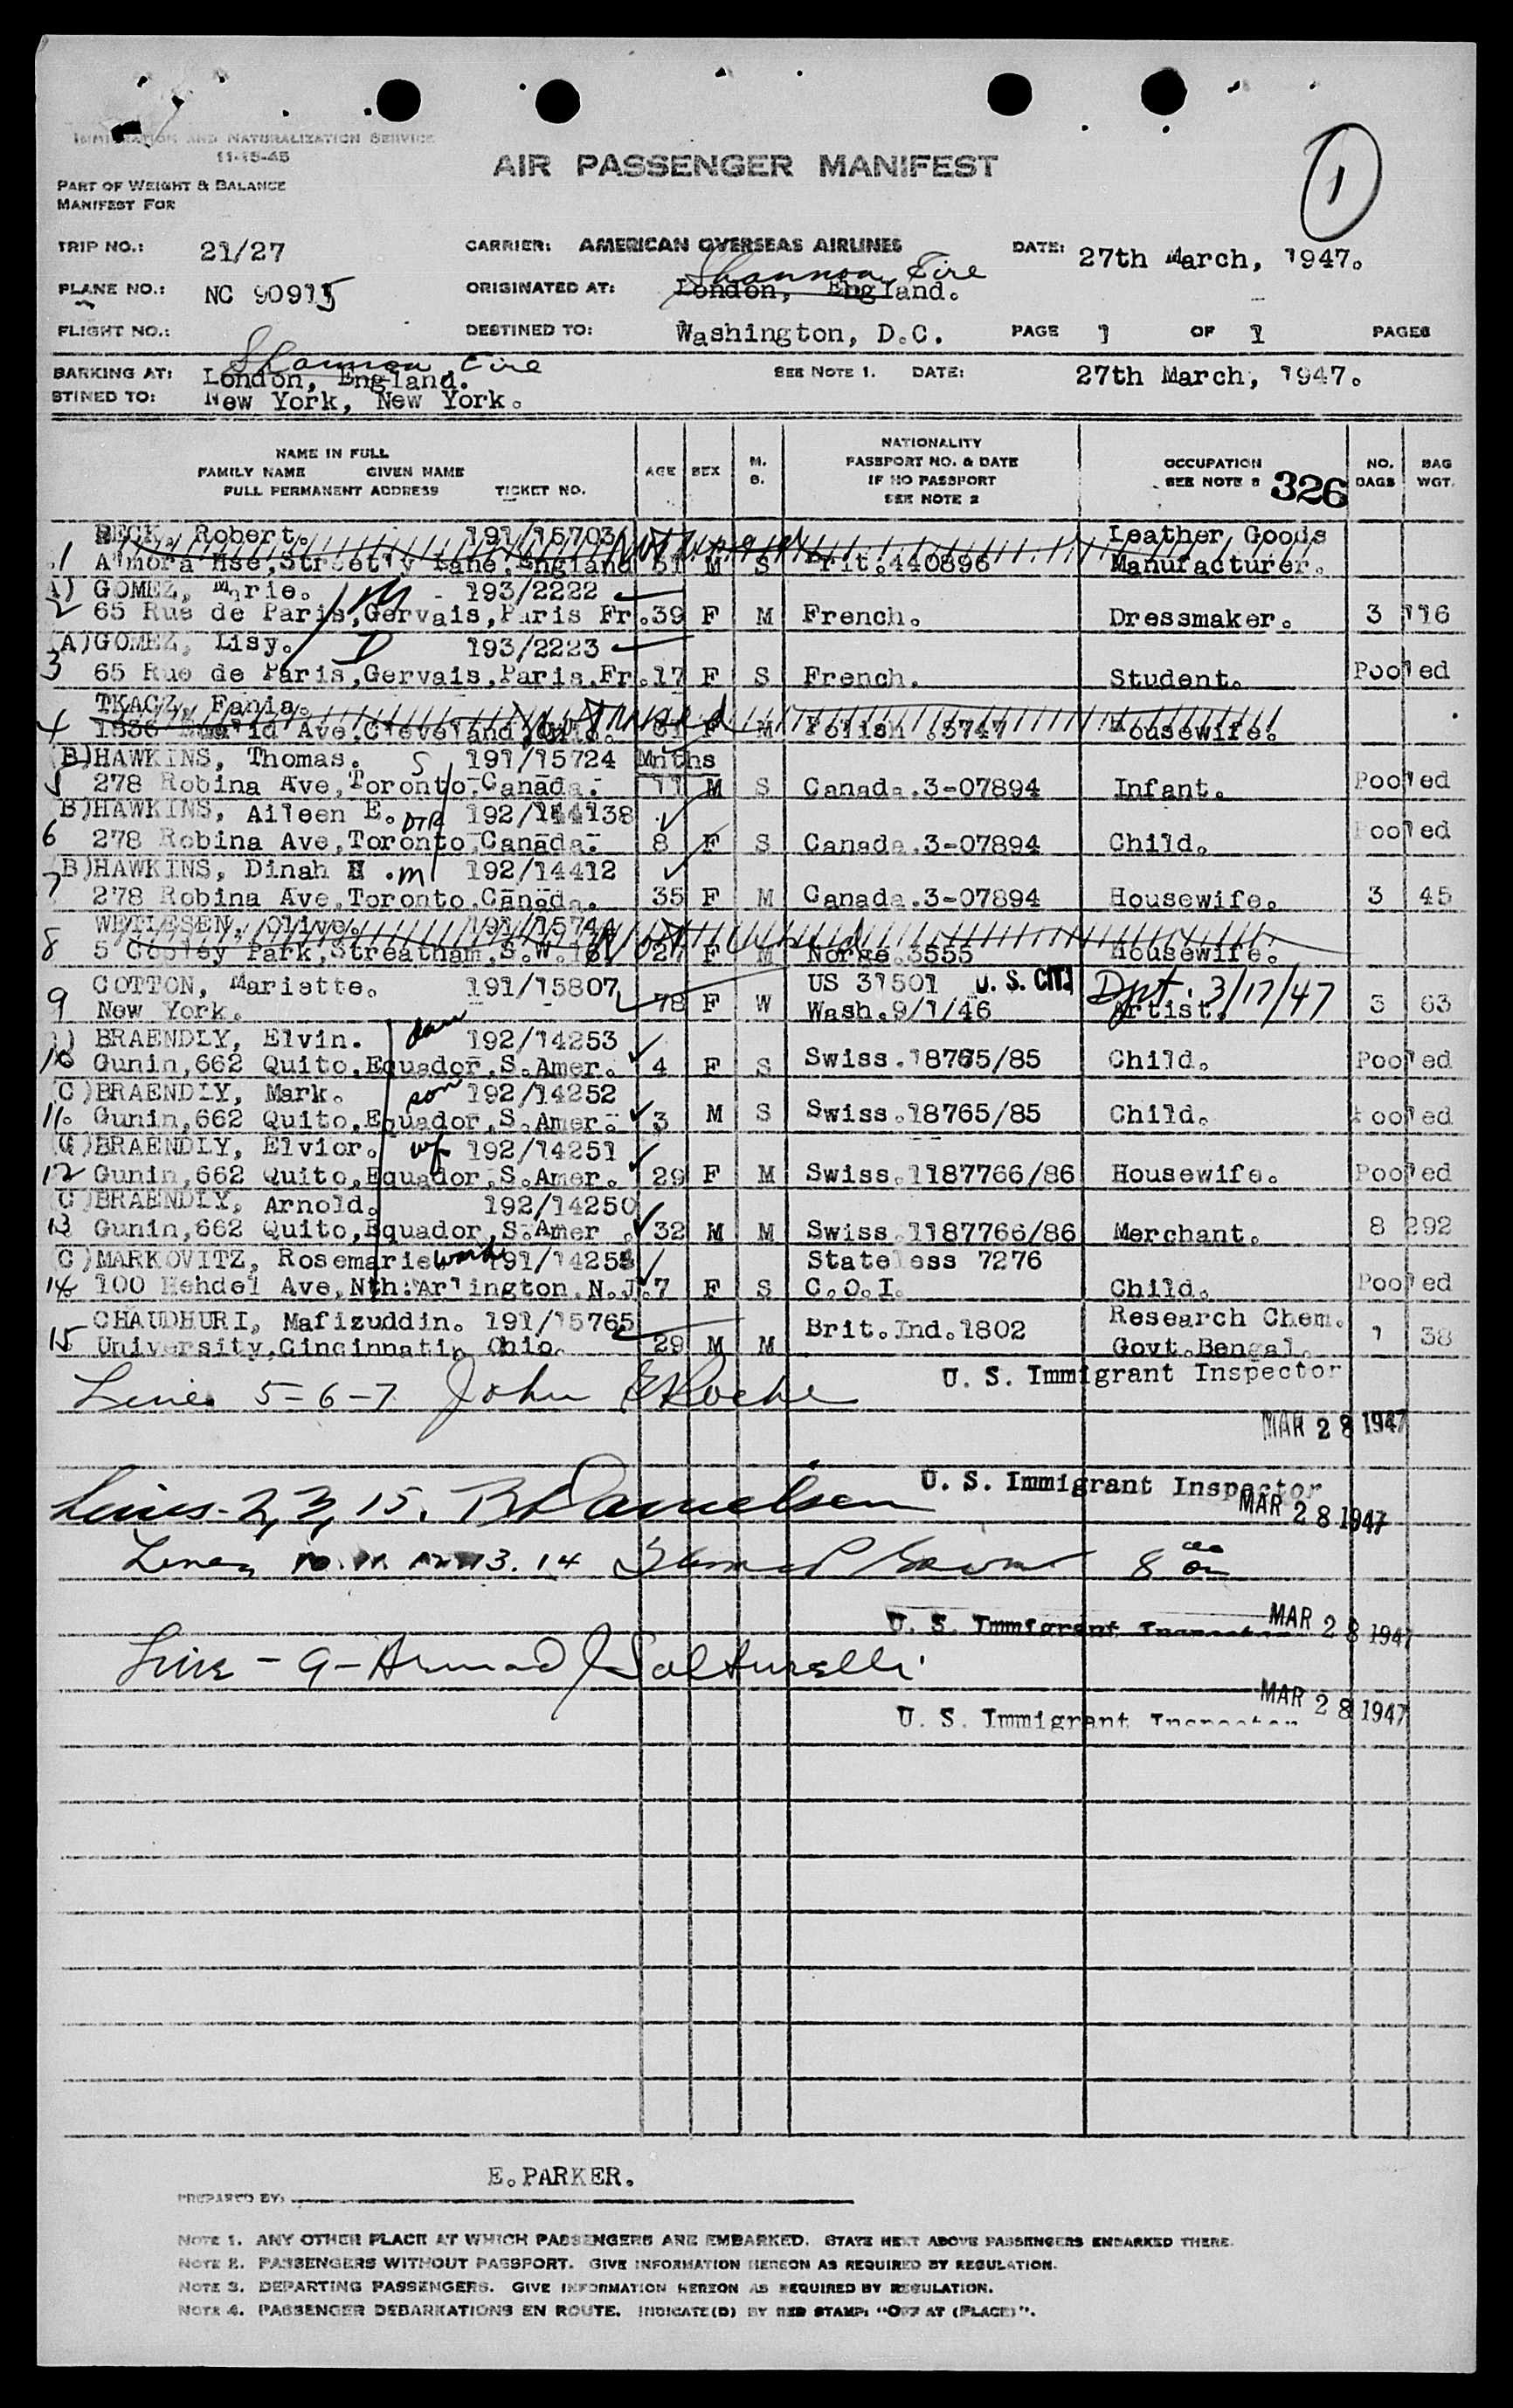 IMMIGRATION AND NATURALIZATION SERVICE
11-15-45
AIR PASSENGER MANIFEST
1
PART OF WEIGHT & BALANCE
MANIFEST FOR
TRIP NO.: 21/27 CARRIER: AMERICAN OVERSEAS AIRLINES DATE: 27th March, 1947.
Shannon Eire
PLANE NO.: NC 90915 ORIGINATED AT: London, England.
FLIGHT NO.: DESTINED TO: Washington, D.C. PAGE 1 OF 1 PAGES
Shannon, Eire
BARKING AT: London, England. SEE NOTE 1. DATE: 27th March, 1947.
STINED TO: New York, New York.
NAME IN FULL
FAMILY NAME GIVEN NAME
FULL PERMANENT ADDRESS TICKET NO.
AGE SEX M. S.
NATIONALITY
PASSPORT NO. & DATE
IF NO PASSPORT
SEE NOTE 2
OCCUPATION
SEE NOTE 3 326
NO. BAGS
BAG WGT.
BECK, Robert. 191/15703 Leather Goods
1 Almora Hse, Streetly Lane, England 51 M S Brit. 440896 Manufacturer.
A) GOMEZ, Marie. M - 193/2222
2 65 Rue de Paris, Gervais, Paris Fr. 39 F M French. Dressmaker. 3 116
(A) GOMEZ, Lisy. D 193/2223
3 65 Rue de Paris, Gervais, Paris, Fr. 17 F S French. Student. Pooled
TKACZ, Fania. Not used
4 1836 Euclid Ave, Cleveland, Ohio. 61 F M Polish .3747 Housewife.
(B) HAWKINS, Thomas. S 191/15724 Mnths
5 278 Robina Ave, Toronto, Canada. 11 M S Canada. 3-07894 Infant. Pooled
B) HAWKINS, Aileen E. DTR 192/144138
6 278 Robina Ave, Toronto, Canada. 8 F S Canada. 3-07894 Child. Pooled
B) HAWKINS, Dinah H. m 192/14412
7 278 Robina Ave, Toronto, Canada. 35 F M Canada. 3-07894 Housewife. 3 45
WETLESEN, Olive. 191/15744 Not used
8 5 Copley Park, Streatham, S.W.16. 27 F M Norge. 3555 Housewife.
COTTON, Mariette. 191/15807 US 31501 U.S. CIT. Dpt. 3/17/47
9 New York. 78 F W Wash. 9/1/46 Artist. 3 63
) BRAENDLY, Elvin. dau 192/14253
10 Gunin, 662 Quito, Equador, S. Amer. 4 F S Swiss. 18765/85 Child. Pooled
(C) BRAENDLY, Mark. son 192/14252
11. Gunin, 662 Quito, Equador, S. Amer. 3 M S Swiss. 18765/85 Child. Pooled
(C) BRAENDLY, Elvior. wf 192/14251
12 Gunin, 662 Quito, Equador, S. Amer. 29 F M Swiss. 1187766/86 Housewife. Pooled
C) BRAENDLY, Arnold. 192/14250
13 Gunin, 662 Quito, Equador, S. Amer. 32 M M Swiss. 1187766/86 Merchant. 8 292
(C) MARKOVITZ, Rosemarie ward 191/14254 Stateless 7276
14 100 Hehdel Ave, Nth: Arlington, N.J. 7 F S C.O.I. Child. Pooled
CHAUDHURI, Mafizuddin. 191/15765 Research Chem.
15 University, Cincinnati, Ohio. 29 M M Brit. Ind. 1802 Govt. Bengal. 1 38
U. S. Immigrant Inspector
Lines 5-6-7 John E Roche
MAR 28 1947
U. S. Immigrant Inspector
Lines-2,3,15. B Danielsen MAR 28 1947
Lines 10. 11. 12. 13. 14
U. S. Immigrant Inspector MAR 28 1947
Line - 9 - Armand J Salturelli
MAR 28 1947
U. S. Immigrant Inspector
E. PARKER.
PREPARED BY:
NOTE 1. ANY OTHER PLACE AT WHICH PASSENGERS ARE EMBARKED. STATE NEXT ABOVE PASSENGERS EMBARKED THERE.
NOTE 2. PASSENGERS WITHOUT PASSPORT. GIVE INFORMATION HEREON AS REQUIRED BY REGULATION.
NOTE 3. DEPARTING PASSENGERS. GIVE INFORMATION HEREON AS REQUIRED BY REGULATION.
NOTE 4. PASSENGER DEBARKATIONS EN ROUTE. INDICATE(D) BY RED STAMP: "OFF AT (PLACE)".